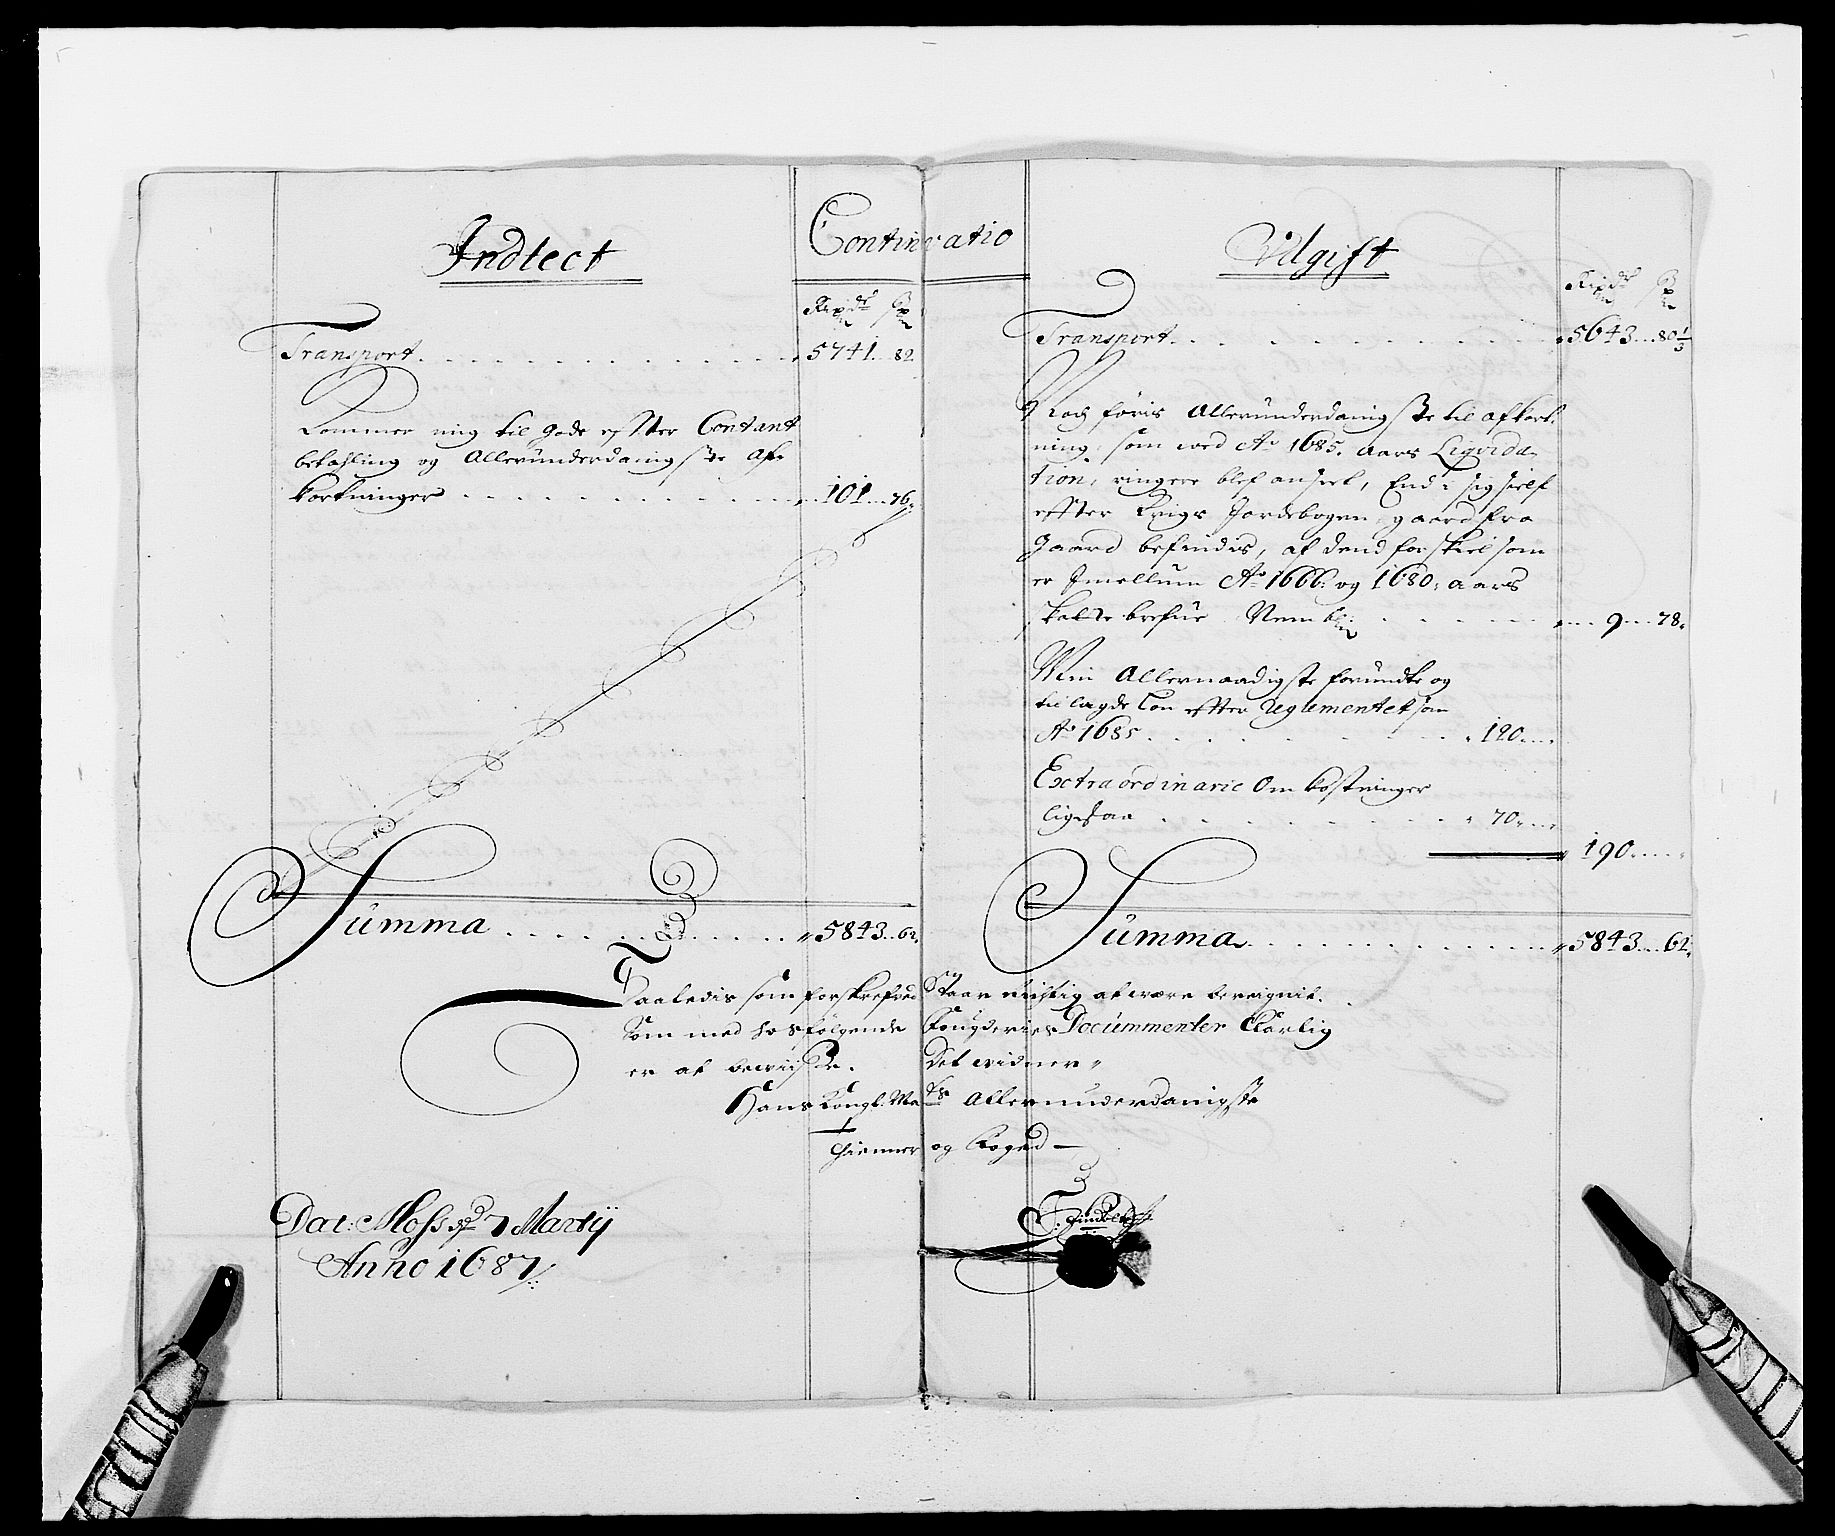 Indtect
Continvatio
Rixdr. ß
Transport . . . 5741 .. 82.
Kommer mig til gode effter Contant
betahling og Allerunderdanigste Af-
kortninger . . . 101 .. 76.
Summa . . . 5843 .. 62.
Udgift
Rixdr. ß
Transport . . . 5643 .. 80 1/3
Noch føris Allerunderdanigste til afkort-
ning, som wed Ao. 1685. aars Liqvida-
tion, ringere blef anseet, End i sig sielf
effter Krigs Jordebogen, gaard fra
gaard befindis, af dend forskiel som
er Imellum Ao. 1666. og 1680. aars
skatte brefue Nembl.. . . 9 .. 78.
Min Allernaadigste forundte og
tillagde Løn effter Reglementet som
Ao 1685 . . . 120
Extraordinarie Omkostninger
ligesaa . . . 70
190
Summa . . . 5843 .. 62.
Saaledis som forskrefved Staar rigtig at være beregnit.
Som med hosfølgende Fougderies Documenter Clarlig
er at bewiise. Det widner
Hans Kongl: Mayts Allerunderdanigste
thienner og Foged
Dat: Moss d 7 Martij
Anno 1687